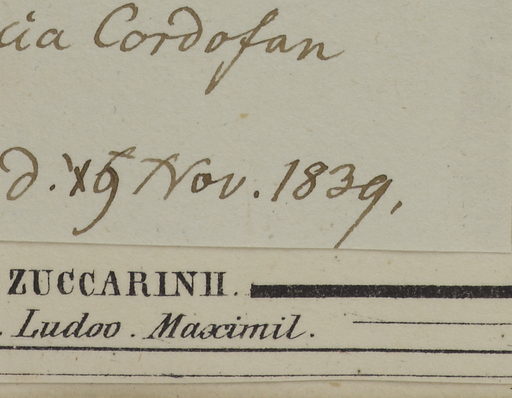 cia Cordofan
d. 19 Nov. 1839.
ZUCCARINII.
. Ludov. Maximil.